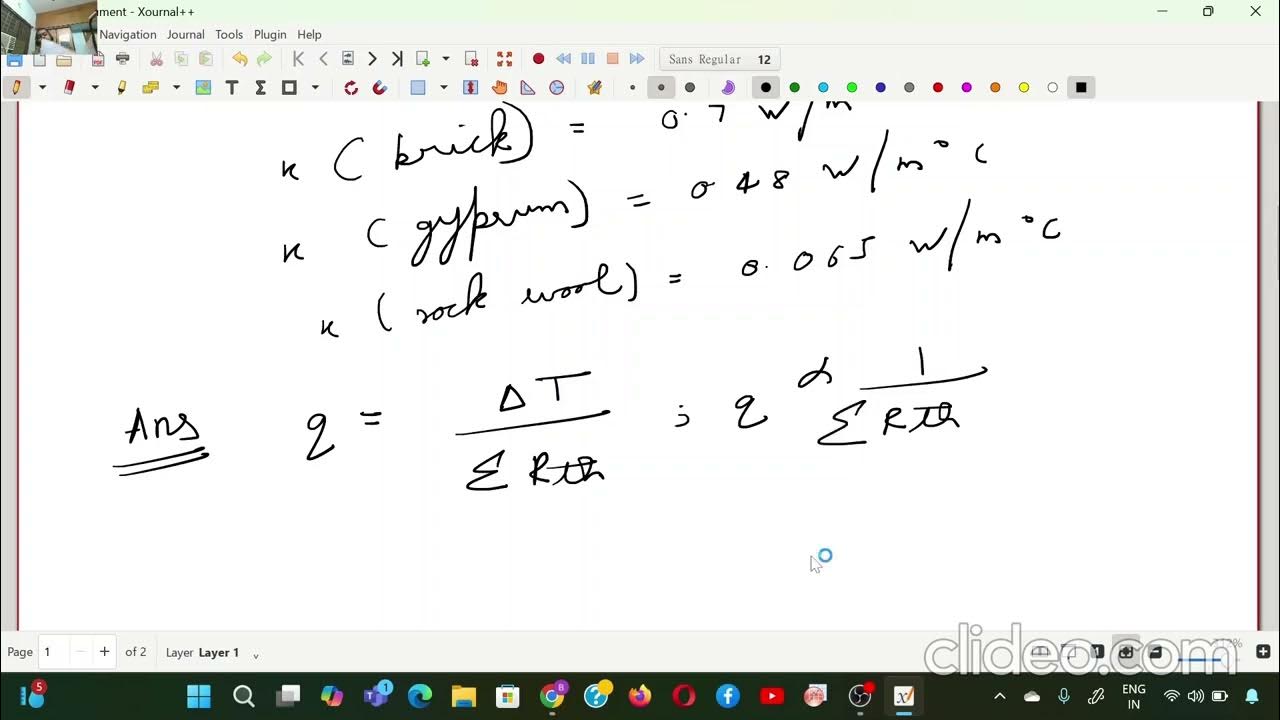 ument - Xournal++
Navigation Journal Tools Plugin Help
Sans Regular 12
κ (brick) = 0.7 W/m
κ (gypsum) = 0.48 W/m°C
κ (rock wool) = 0.065 W/m°C
Ans q = ΔT / Σ Rth ; q ∝ 1 / Σ Rth
Page 1 of 2 Layer Layer 1
clideo.com
5
1
ENG
IN